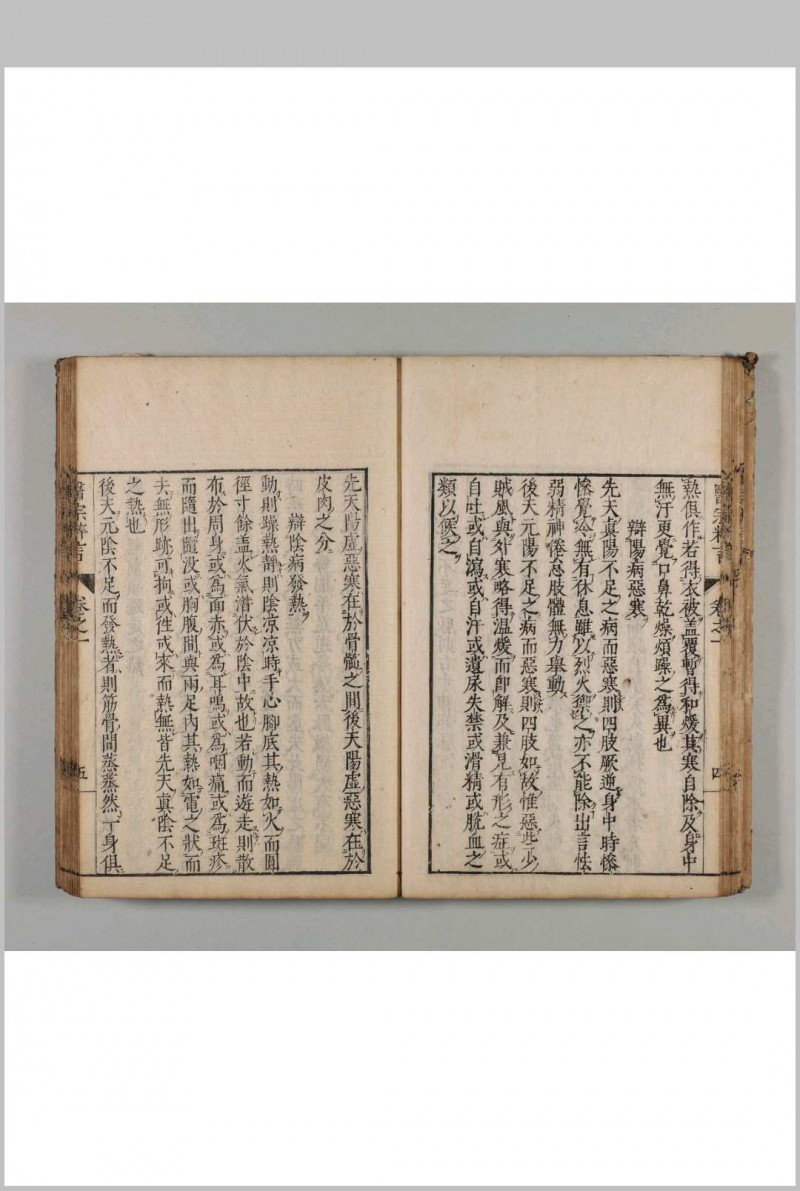 熱俱作若得衣被蓋覆暫得和煖其寒自除及身中
無汗更覺口鼻乾燥煩躁之為異也
辯陽病惡寒
先天真陽不足之病而惡寒則四肢厥逆身中時慘
慘覺冷無有休息雖以烈火禦之亦不能除出言怯
弱精神倦怠肢體無力舉動
後天元陽不足之病而惡寒則四肢如故惟惡些少
賊風與外寒略得溫煖而即解及兼見有形之症或
自吐或自瀉或自汗或遺尿失禁或滑精或脫血之
類以候之
醫宗粹言
卷之一
四
先天陽虛惡寒在於骨髓之間後天陽虛惡寒在於
皮肉之分
辯陰病發熱
動則躁熱靜則陰凉凉時手心腳底其熱如火而圓
徑寸餘蓋火氣潛伏於陰中故也若動而遊走則散
布於周身或為面赤或為耳鳴或為咽痛或為斑疹
而隨出隨没或胸腹間與兩足內其熱如電之狀而
夫無形跡可拘或徃或來而熱無皆先天真陰不足
之熱也
後天元陰不足而發熱者則筋骨間蒸蒸然一身俱
醫宗粹言
卷之一
五